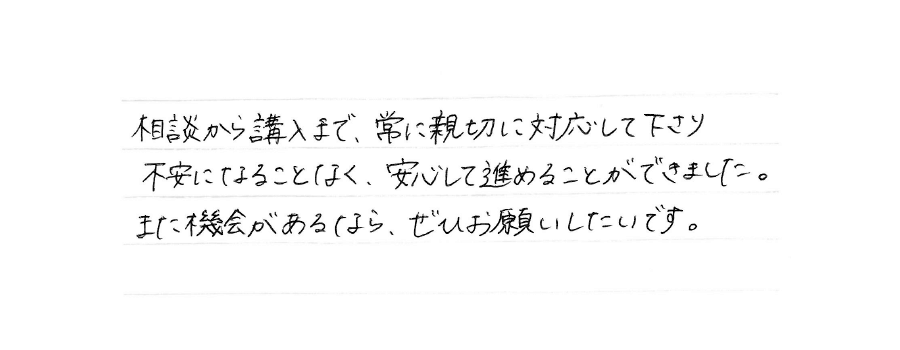 相談から講入まで、常に親切に対応して下さり
不安になることなく、安心して進めることができました。
また機会があるなら、ぜひお願いしたいです。